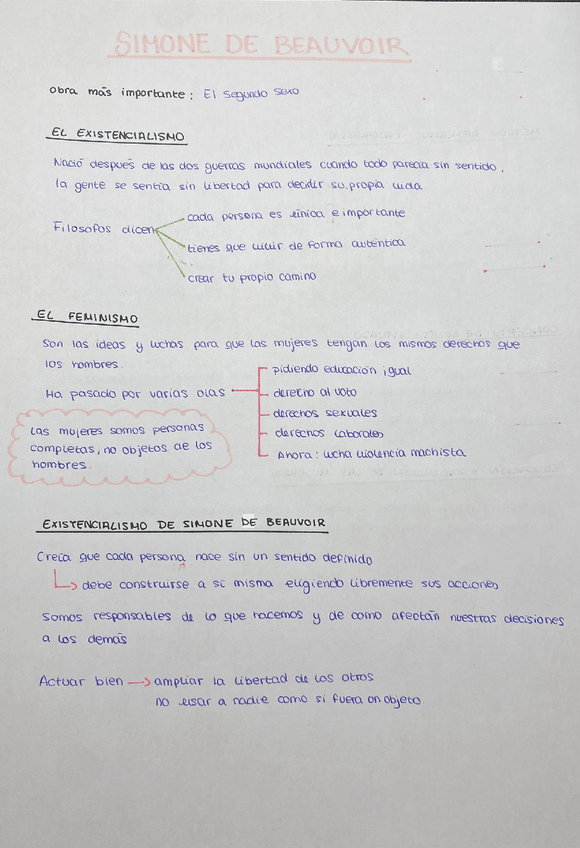 SIMONE DE BEAUVOIR
obra más importante: El Segundo Sexo
EL EXISTENCIALISMO
Nació después de las dos guerras mundiales cuando todo parecía sin sentido,
la gente se sentía sin libertad para decidir su propia vida.
Filosofos dicen
cada persona es única e importante
tienes que vivir de forma auténtica
crear tu propio camino
EL FEMINISMO
Son las ideas y luchas para que las mujeres tengan los mismos derechos que
los hombres.
Ha pasado por varias olas
pidiendo educación igual
derecho al voto
derechos sexuales
derechos laborales
Ahora: lucha violencia machista
Las mujeres somos personas
completas, no objetos de los
hombres.
EXISTENCIALISMO DE SIMONE DE BEAUVOIR
Creía que cada persona nace sin un sentido definido
debe construirse a si misma eligiendo libremente sus acciones
Somos responsables de lo que hacemos y de como afectán nuestras decisiones
a los demás
Actuar bien → ampliar la libertad de los otros
no usar a nadie como si fuera un objeto